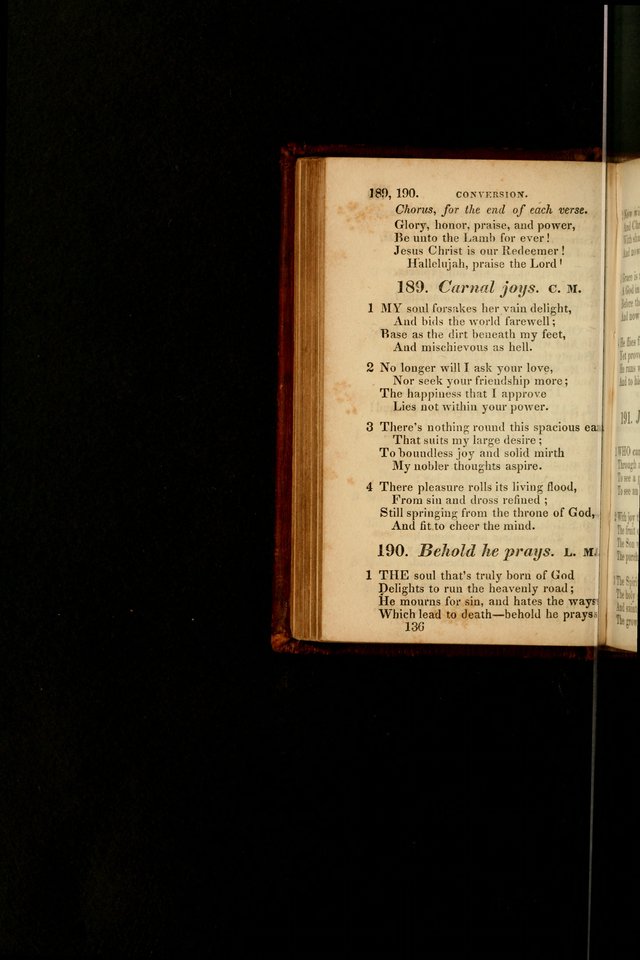 189, 190. CONVERSION.
Chorus, for the end of each verse.
Glory, honor, praise, and power,
Be unto the Lamb for ever!
Jesus Christ is our Redeemer!
Hallelujah, praise the Lord!
189. Carnal joys. C. M.
1 MY soul forsakes her vain delight,
And bids the world farewell;
Base as the dirt beneath my feet,
And mischievous as hell.
2 No longer will I ask your love,
Nor seek your friendship more;
The happiness that I approve
Lies not within your power.
3 There's nothing round this spacious
That suits my large desire;
To boundless joy and solid mirth
My nobler thoughts aspire.
4 There pleasure rolls its living flood,
From sin and dross refined;
Still springing from the throne of God,
And fit to cheer the mind.
190. Behold he prays. L. M.
1 THE soul that's truly born of God
Delights to run the heavenly road;
He mourns for sin, and hates the ways
Which lead to death—behold he prays
136
191.
WHO
Through
To see a
To see an